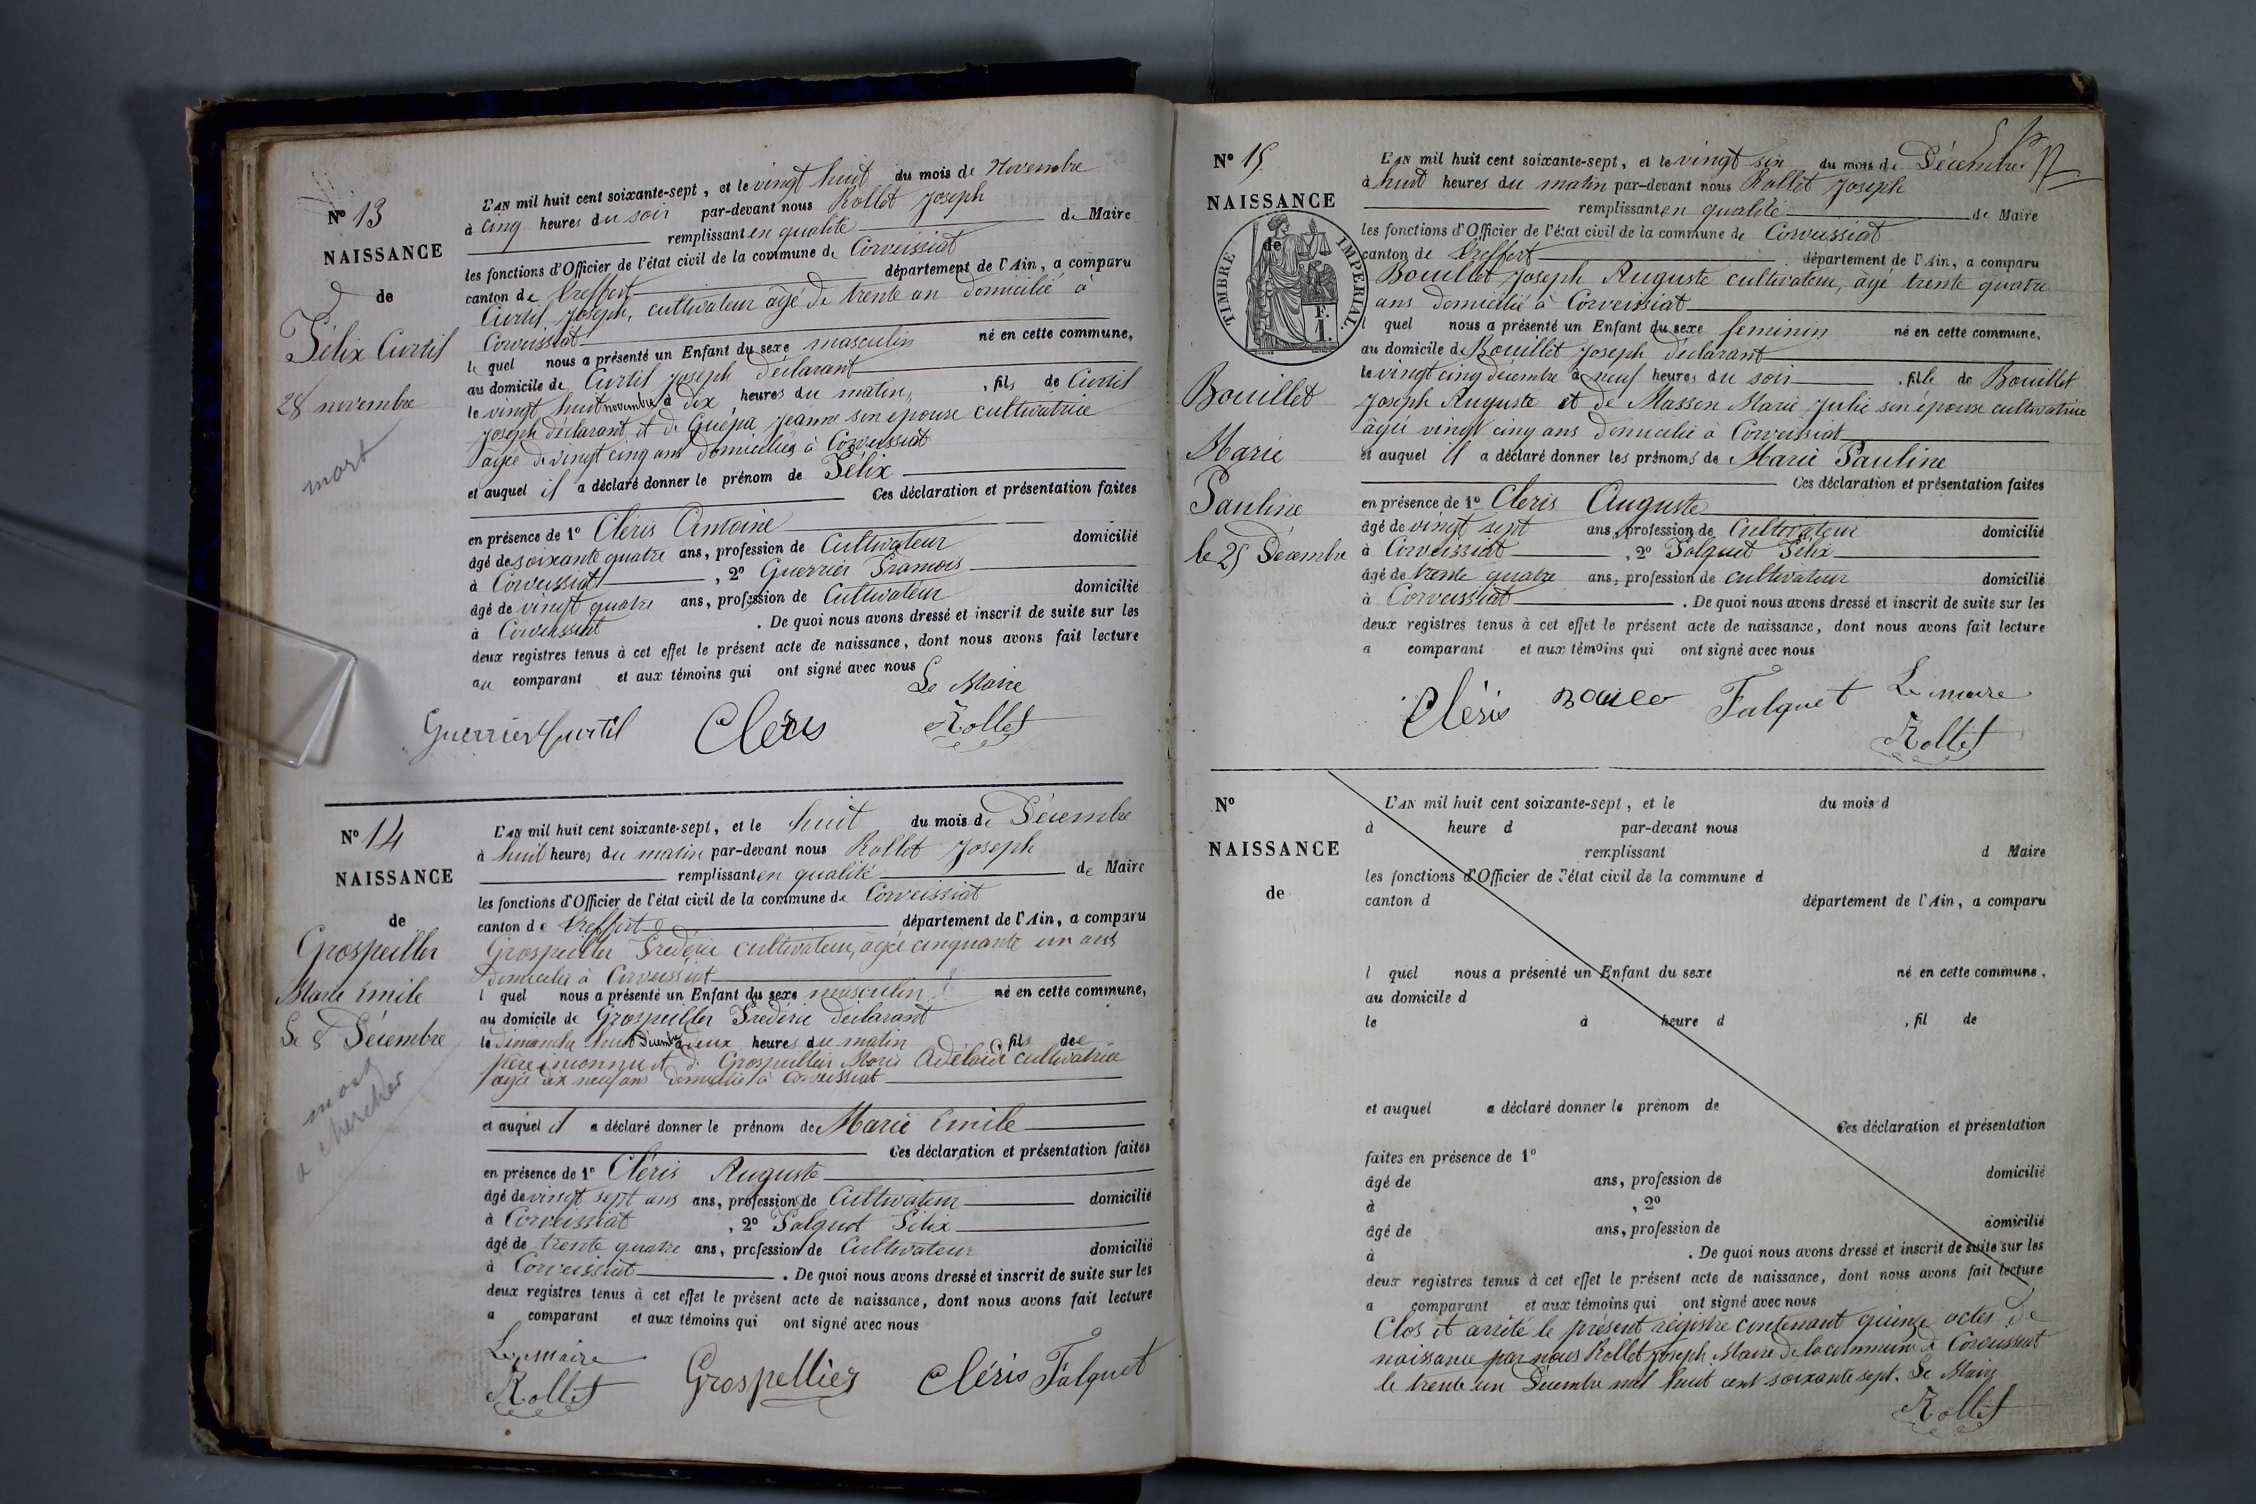 Nº 13
NAISSANCE
de
Félix Curtil
28 novembre
mort
L'AN mil huit cent soixante-sept, et le vingt huit du mois de Novembre
à cinq heures du soir par-devant nous Rollet Joseph
remplissant en qualité de Maire
les fonctions d'Officier de l'état civil de la commune de Corveissiat
canton de Treffort département de l'Ain, a comparu
Curtil Joseph, cultivateur âgé de trente an domicilié à
Corveissiat
le quel nous a présenté un Enfant du sexe masculin né en cette commune,
au domicile de Curtil Joseph déclarant
le vingt huit novembre à dix heures du matin, , fils de Curtil
Joseph déclarant et de Guépa Jeanne son épouse cultivatrice
âgée de vingt cinq ans domiciliés à Corveissiat
et auquel il a déclaré donner le prénom de Félix
Ces déclaration et présentation faites
en présence de 1º Cléris Antoine
âgé de soixante quatre ans, profession de Cultivateur domicilié
à Corveissiat , 2º Guerrier François
âgé de vingt quatre ans, profession de Cultivateur domicilié
à Corveissiat . De quoi nous avons dressé et inscrit de suite sur les
deux registres tenus à cet effet le présent acte de naissance, dont nous avons fait lecture
au comparant et aux témoins qui ont signé avec nous
Le Maire
Guerrier Curtil Cléris Rollet
Nº 14
NAISSANCE
de
Grospeiller
Marie Emile
Le 8 Décembre
mort
a chercher
L'AN mil huit cent soixante-sept, et le huit du mois de Décembre
à huit heures du matin par-devant nous Rollet Joseph
remplissant en qualité de Maire
les fonctions d'Officier de l'état civil de la commune de Corveissiat
canton de Treffort département de l'Ain, a comparu
Grospeiller Frédéric cultivateur, âgé cinquante un ans
domicilié à Corveissiat
l quel nous a présenté un Enfant du sexe masculin né en cette commune,
au domicile de Grospeiller Frédéric déclarant
le dimanche huit Décembre à deux heures du matin , fils de
père inconnu et de Grospeiller Marie Adélaïde cultivatrice
âgée dix neuf ans domiciliée à Corveissiat
et auquel il a déclaré donner le prénom de Marie Emile
Ces déclaration et présentation faites
en présence de 1º Cléris Auguste
âgé de vingt sept ans ans, profession de Cultivateur domicilié
à Corveissiat , 2º Falquet Félix
âgé de trente quatre ans, profession de Cultivateur domicilié
à Corveissiat . De quoi nous avons dressé et inscrit de suite sur les
deux registres tenus à cet effet le présent acte de naissance, dont nous avons fait lecture
a comparant et aux témoins qui ont signé avec nous
Le maire
Rollet Grospellier Cléris Falquet
Nº 15
NAISSANCE
de
TIMBRE IMPERIAL.
1 F.
Bouillet
Marie
Pauline
le 25 Décembre
L'AN mil huit cent soixante-sept, et le vingt six du mois de Décembre
à huit heures du matin par-devant nous Rollet Joseph
remplissant en qualité de Maire
les fonctions d'Officier de l'état civil de la commune de Corveissiat
canton de Treffort département de l'Ain, a comparu
Bouillet Joseph Auguste cultivateur, âgé trente quatre
ans domicilié à Corveissiat
l quel nous a présenté un Enfant du sexe feminin né en cette commune,
au domicile de Bouillet Joseph déclarant
le vingt cinq décembre à neuf heures du soir , fille de Bouillet
Joseph Auguste et de Masson Marie Julie son épouse cultivatrice
âgée vingt cinq ans domicilié à Corveissiat
et auquel il a déclaré donner les prénoms de Marie Pauline
Ces déclaration et présentation faites
en présence de 1º Cleris Auguste
âgé de vingt sept ans, profession de Cultivateur domicilié
à Corveissiat , 2º Falquet Félix
âgé de trente quatre ans, profession de cultivateur domicilié
à Corveissiat . De quoi nous avons dressé et inscrit de suite sur les
deux registres tenus à cet effet le présent acte de naissance, dont nous avons fait lecture
a comparant et aux témoins qui ont signé avec nous
Cléris Falquet Le maire
Rollet
Nº
NAISSANCE
de
L'AN mil huit cent soixante-sept, et le du mois d
à heure d par-devant nous
remplissant d Maire
les fonctions d'Officier de l'état civil de la commune d
canton d département de l'Ain, a comparu
l quel nous a présenté un Enfant du sexe né en cette commune,
au domicile d
le à heure d , fil de
et auquel a déclaré donner le prénom de
Ces déclaration et présentation
faites en présence de 1º
âgé de ans, profession de domicilié
à , 2º
âgé de ans, profession de domicilié
à . De quoi nous avons dressé et inscrit de suite sur les
deux registres tenus à cet effet le présent acte de naissance, dont nous avons fait lecture
a comparant et aux témoins qui ont signé avec nous
Clos et arrêté le présent régistre contenant quinze actes de
naissance par nous Rollet Joseph Maire de la commune de Corveissiat
le trente un Décembre mil huit cent soixante sept. Le Maire
Rollet